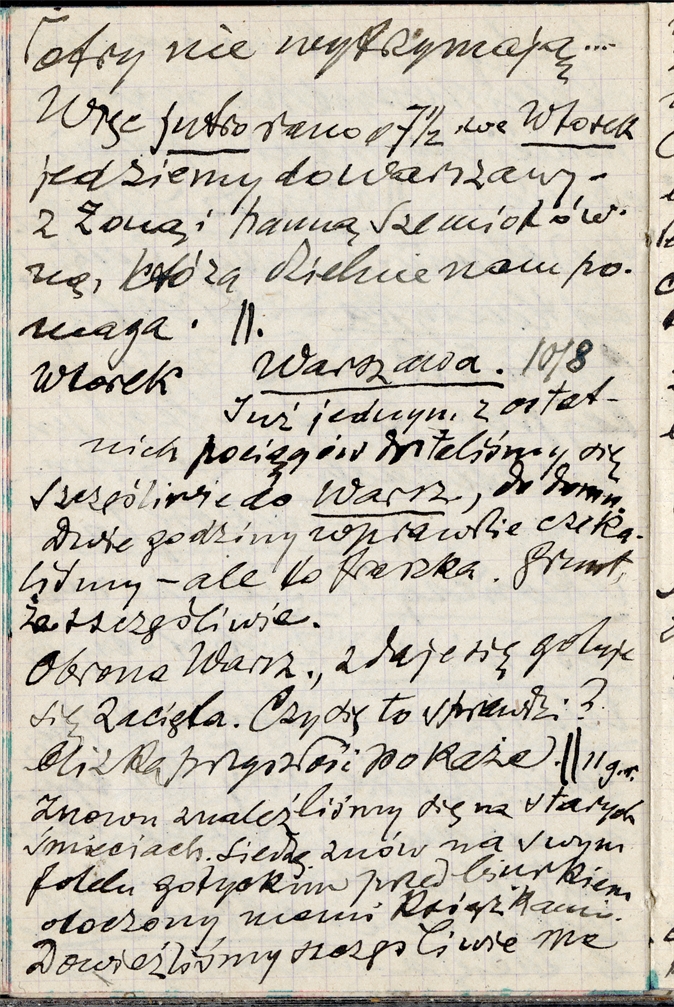 nie wytrzymają...
Więc jutro rano o 7½ we Wtorek
jedziemy do Warszawy -
z Żoną i Hanną Szemiotów-
ną, która dzielnie nam po-
maga. ||.
Wtorek Warszawa. 10/8
Już jednym z ostat-
nich pociągów dotarliśmy się
szczęśliwie do Warsz., do domu,
Dwie godziny wprawdzie czeka-
liśmy - ale to fraszka. Grunt,
że szczęśliwie.
Obrona Warsz., zdaje się gotuje
się zacięta. Czy się to sprawdzi?
Blizka przyszłość pokaże. || 11 g.r.
Znowu znaleźliśmy się na starych
śmieciach. Siedzę znów na swym
fotelu gotyckim przed biurkiem
otoczony memi książkami.
Dowieźliśmy szczęśliwie me